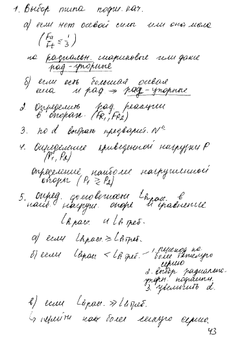 1. Выбор типа подш. кач.
а) если нет осевой силы или она мала
(Fa/Fr ≤ 1/3)
то радиальн. шариковые или даже
рад-упорные
б) если есть большая осевая
сила и рад → рад-упорные
2. Определить рад реакции
в опорах (Fr1, Fr2)
3. по d выбрать предварит. №
4. Определение приведенной нагрузки P
(P1, P2)
определение наиболее нагруженной
опоры (P1 ≥ P2)
5. опред. долговечности Lhрасч. в
наиб нагруж. опоре и сравнение
Lhрасч. и Lhтреб.
а) если Lhрасч ≥ Lhтреб.
б) если Lhрасч < Lhтреб. 1. переход на
более тяжелую
серию
2. выбор
3. увеличить d.
в) если Lhрасч. ≫ Lhтреб.
↳ перейти на более легкую серию.
43